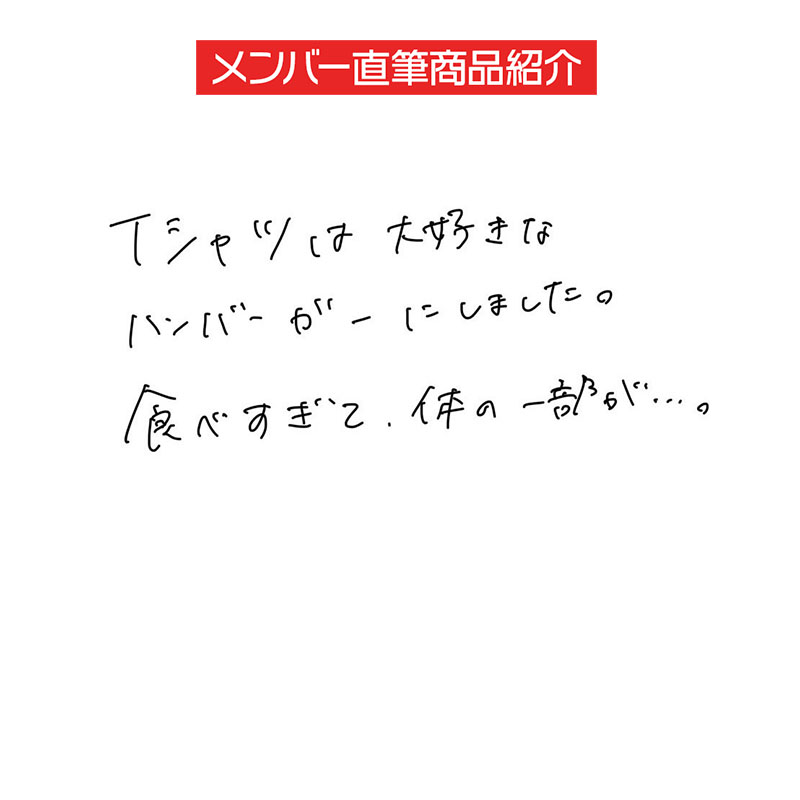 メンバー直筆商品紹介
Tシャツは 大好きな
ハンバーガーにしました。
食べすぎて、体の一部が…。